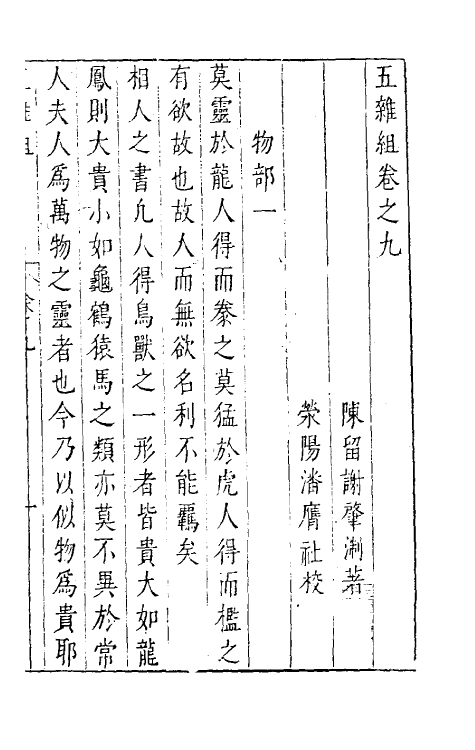 五雜組卷之九
陳留謝肇淛著
滎陽潘膺祉校
物部一
莫靈於龍人得而豢之莫猛於虎人得而檻之
有欲故也故人而無欲名利不能羈矣
相人之書凡人得鳥獸之一形者皆貴大如龍
鳳則大貴小如龜鶴猿馬之類亦莫不異於常
人夫人爲萬物之靈者也今乃以似物爲貴耶